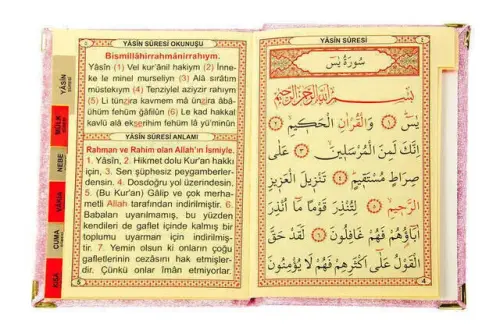 YÂSÎN SÛRESİ OKUNUŞU
Bismillâhirrahmânirrahıym.
Yâsîn (1) Vel kur'ânil hakiym (2) İnne-
ke le minel murseliyn (3) Alâ sırâtım
müstekıym (4) Tenziylel aziyzir rahıym
(5) Li tünzira kavmem mâ ünzira âbâ-
ühüm fehüm ğâfilûn (6) Le kad hakkal
kavlü alâ ekserihim fehüm lâ yü'minûn
YÂSÎN SÛRESİ ANLAMI
Rahman ve Rahim olan Allah'ın İsmiyle.
1. Yâsîn, 2. Hikmet dolu Kur'an hakkı
için, 3. Sen şüphesiz peygamberler-
densin. 4. Dosdoğru yol üzerindesin.
5. (Bu Kur'an) Gâlip ve çok merha-
metli Allah tarafından indirilmiştir. 6.
Babaları uyarılmamış, bu yüzden
kendileri de gaflet içinde kalmış bir
toplumu uyarman için indirilmiş-
tir. 7. Yemin olsun ki onların çoğu
gafletlerinin cezasını hak etmişler-
dir. Çünkü onlar îman etmiyorlar.
5
YÂSÎN
MÜLK
NEBE
VAKIA
CUMA
KISA
YÂSÎN SÛRESİ
سُورَةُ يٰسٓ
بِسْمِ اللهِ الرَّحْمٰنِ الرَّحِيمِ
يٰسٓ ﴿١﴾ وَالْقُرْاٰنِ الْحَكِيمِ ﴿٢﴾
اِنَّكَ لَمِنَ الْمُرْسَلِينَ ﴿٣﴾ عَلٰى
صِرَاطٍ مُسْتَقِيمٍ ﴿٤﴾ تَنْزِيلَ الْعَزِيزِ
الرَّحِيمِ ﴿٥﴾ لِتُنْذِرَ قَوْمًا مَٓا اُنْذِرَ
اٰبَٓاؤُهُمْ فَهُمْ غَافِلُونَ ﴿٦﴾ لَقَدْ حَقَّ
الْقَوْلُ عَلٰٓى اَكْثَرِهِمْ فَهُمْ لَا يُؤْمِنُونَ
4